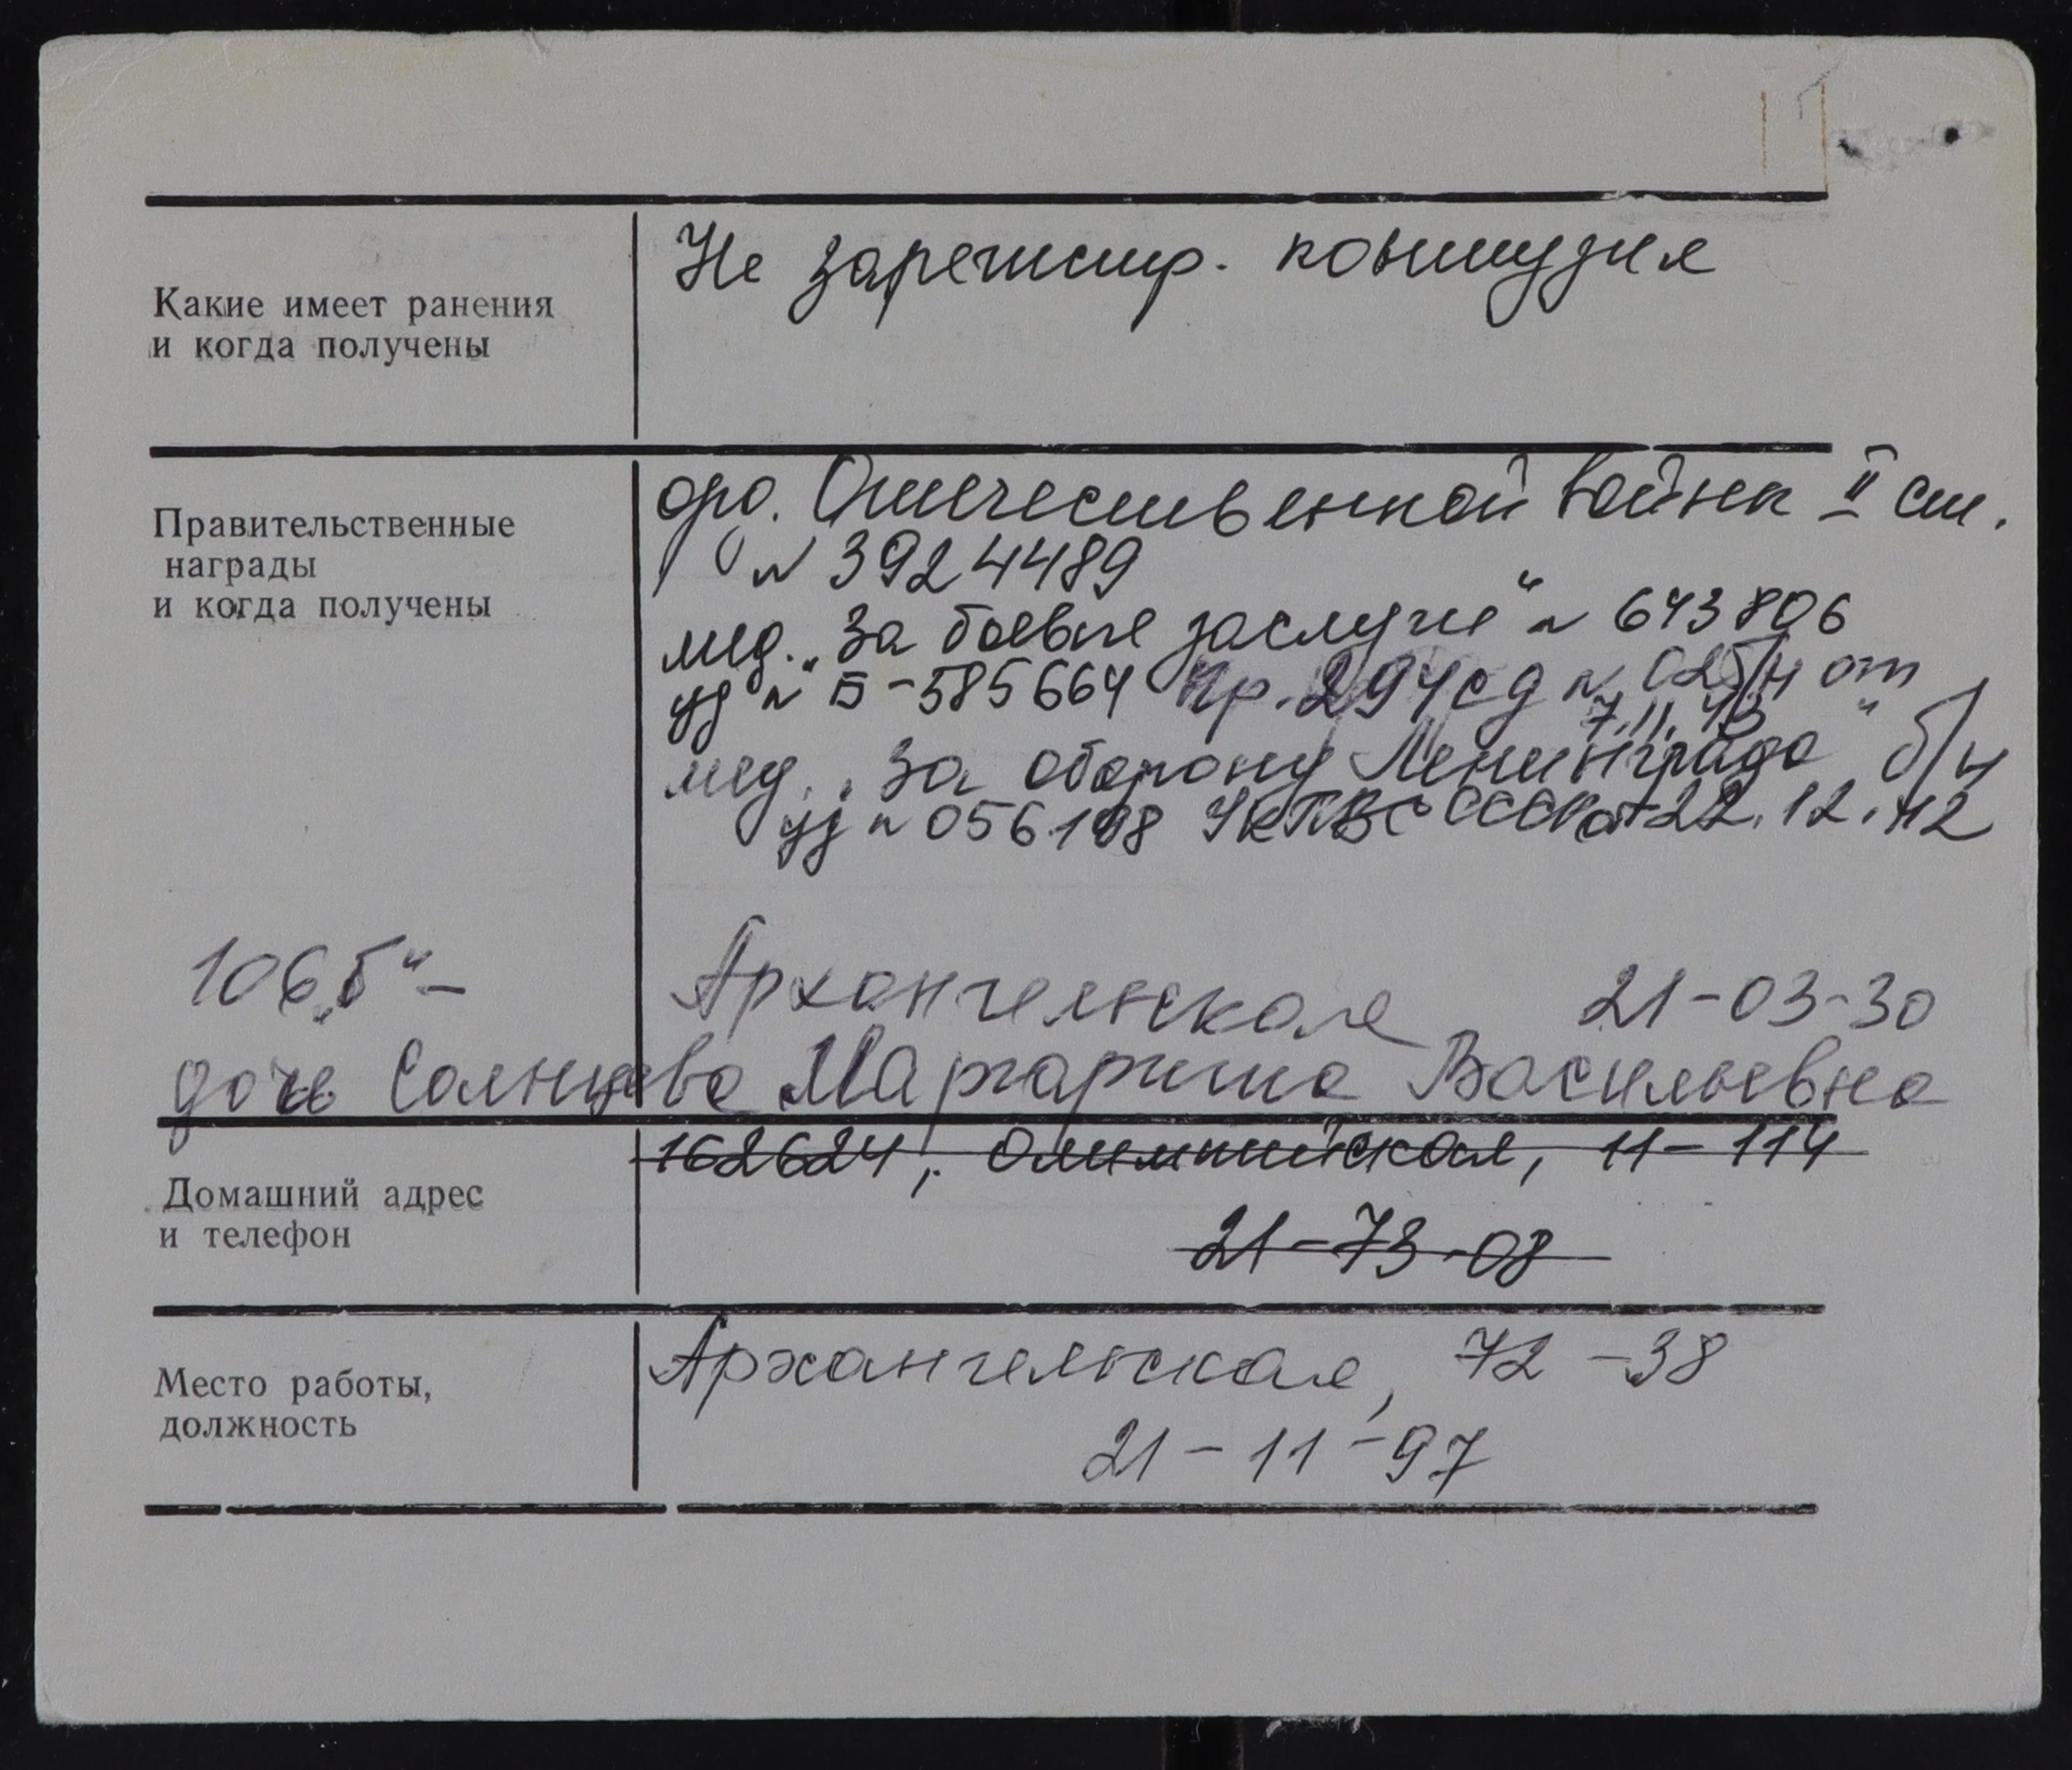 Какие имеет ранения
и когда получены
Не зарегистр. контузия
Правительственные
награды
и когда получены
орд. Отечественной войны II ст.
N 3924489
мед. „За боевые заслуги“ N 643806
уд N Б-585664 Пр. 294 сд N 025/н от
7.11.43
мед. „За оборону Ленинграда“ б/н
уд N УкПВС СССР от 22.12.42
106„б“ – Архангельская 21-03-30
дочь Солнцева Маргарита Васильевна
Домашний адрес
и телефон
162624, Олимпийская, 11-114
21-73-08
Место работы,
должность
Архангельская, 72-38
21-11-97